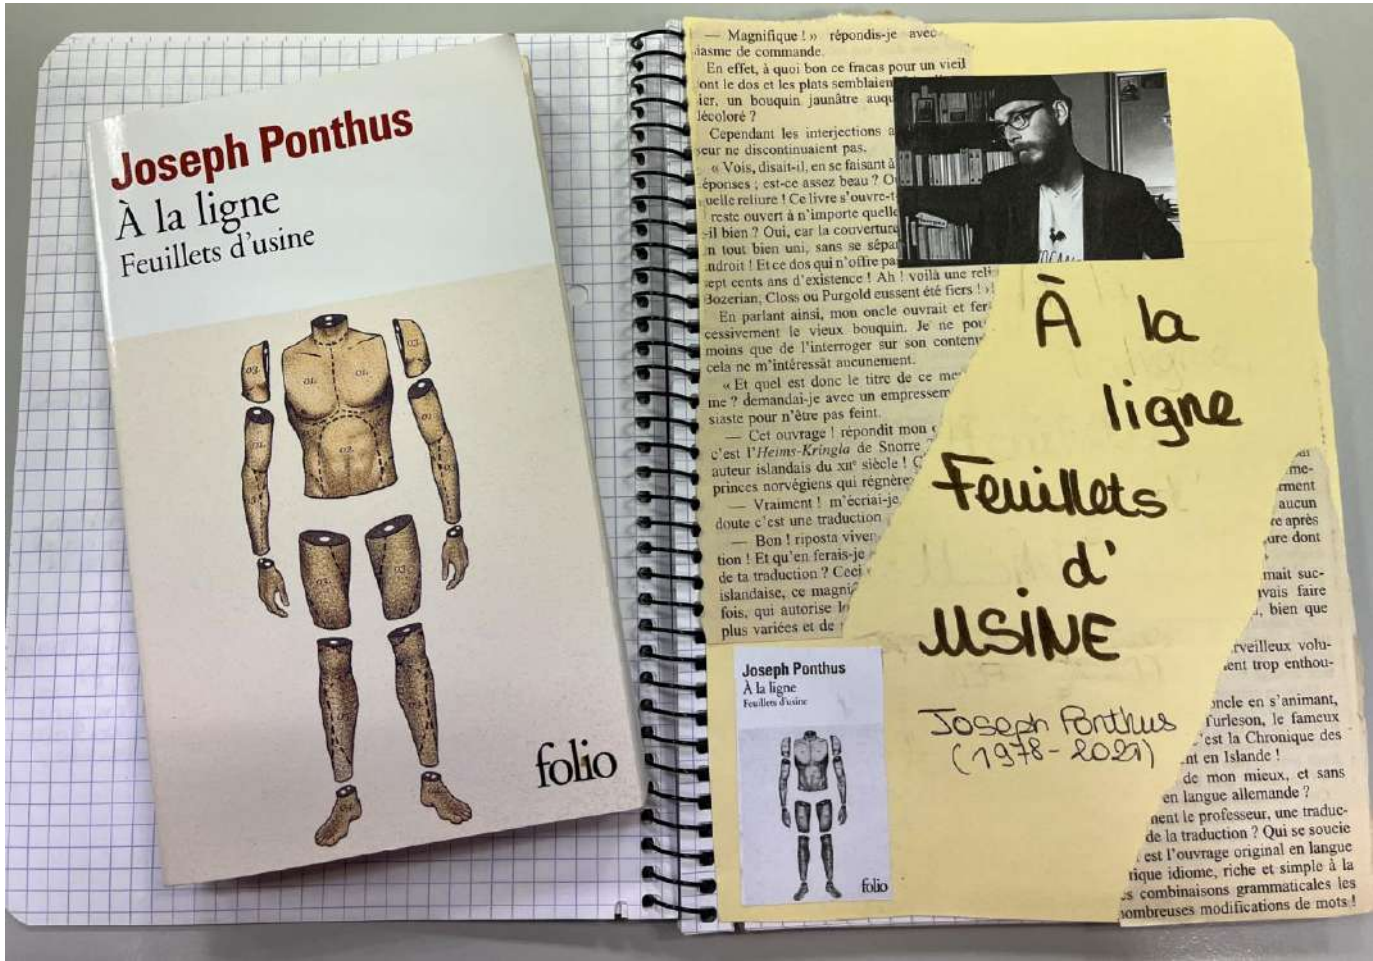 Joseph Ponthus
À la ligne
Feuillets d'usine
folio
— Magnifique ! » répondis-je avec
iasme de commande.
En effet, à quoi bon ce fracas pour un vieil
ont le dos et les plats semblaien
ier, un bouquin jaunâtre auqu
lécoloré ?
Cependant les interjections a
seur ne discontinuaient pas.
« Vois, disait-il, en se faisant à
éponses ; est-ce assez beau ? O
uelle reliure ! Ce livre s'ouvre-t
reste ouvert à n'importe quelle
-il bien ? Oui, car la couverture
n tout bien uni, sans se sépa
ndroit ! Et ce dos qui n'offre pa
sept cents ans d'existence ! Ah ! voilà une reli
Bozerian, Closs ou Purgold eussent été fiers ! »
En parlant ainsi, mon oncle ouvrait et fer
cessivement le vieux bouquin. Je ne pou
moins que de l'interroger sur son contenu
cela ne m'intéressât aucunement.
« Et quel est donc le titre de ce me
me ? demandai-je avec un empressem
siaste pour n'être pas feint.
— Cet ouvrage ! répondit mon
c'est l'Heims-Kringla de Snorre
auteur islandais du XIIe siècle ! C
princes norvégiens qui régnère
— Vraiment ! m'écriai-je
doute c'est une traduction
— Bon ! riposta viven
tion ! Et qu'en ferais-je
de ta traduction ? Ceci
islandaise, ce magni
fois, qui autorise l
plus variées et de
À la
ligne
Feuillets
d'
USINE
Joseph Ponthus
(1978-2021)
Joseph Ponthus
À la ligne
Feuillets d'usine
folio
me-
rment
aucun
re après
ure dont
mait suc-
vais faire
, bien que
rveilleux volu-
ent trop enthou-
oncle en s'animant,
Turleson, le fameux
'est la Chronique des
nt en Islande !
de mon mieux, et sans
en langue allemande ?
nent le professeur, une traduc-
de la traduction ? Qui se soucie
est l'ouvrage original en langue
rique idiome, riche et simple à la
s combinaisons grammaticales les
nombreuses modifications de mots !